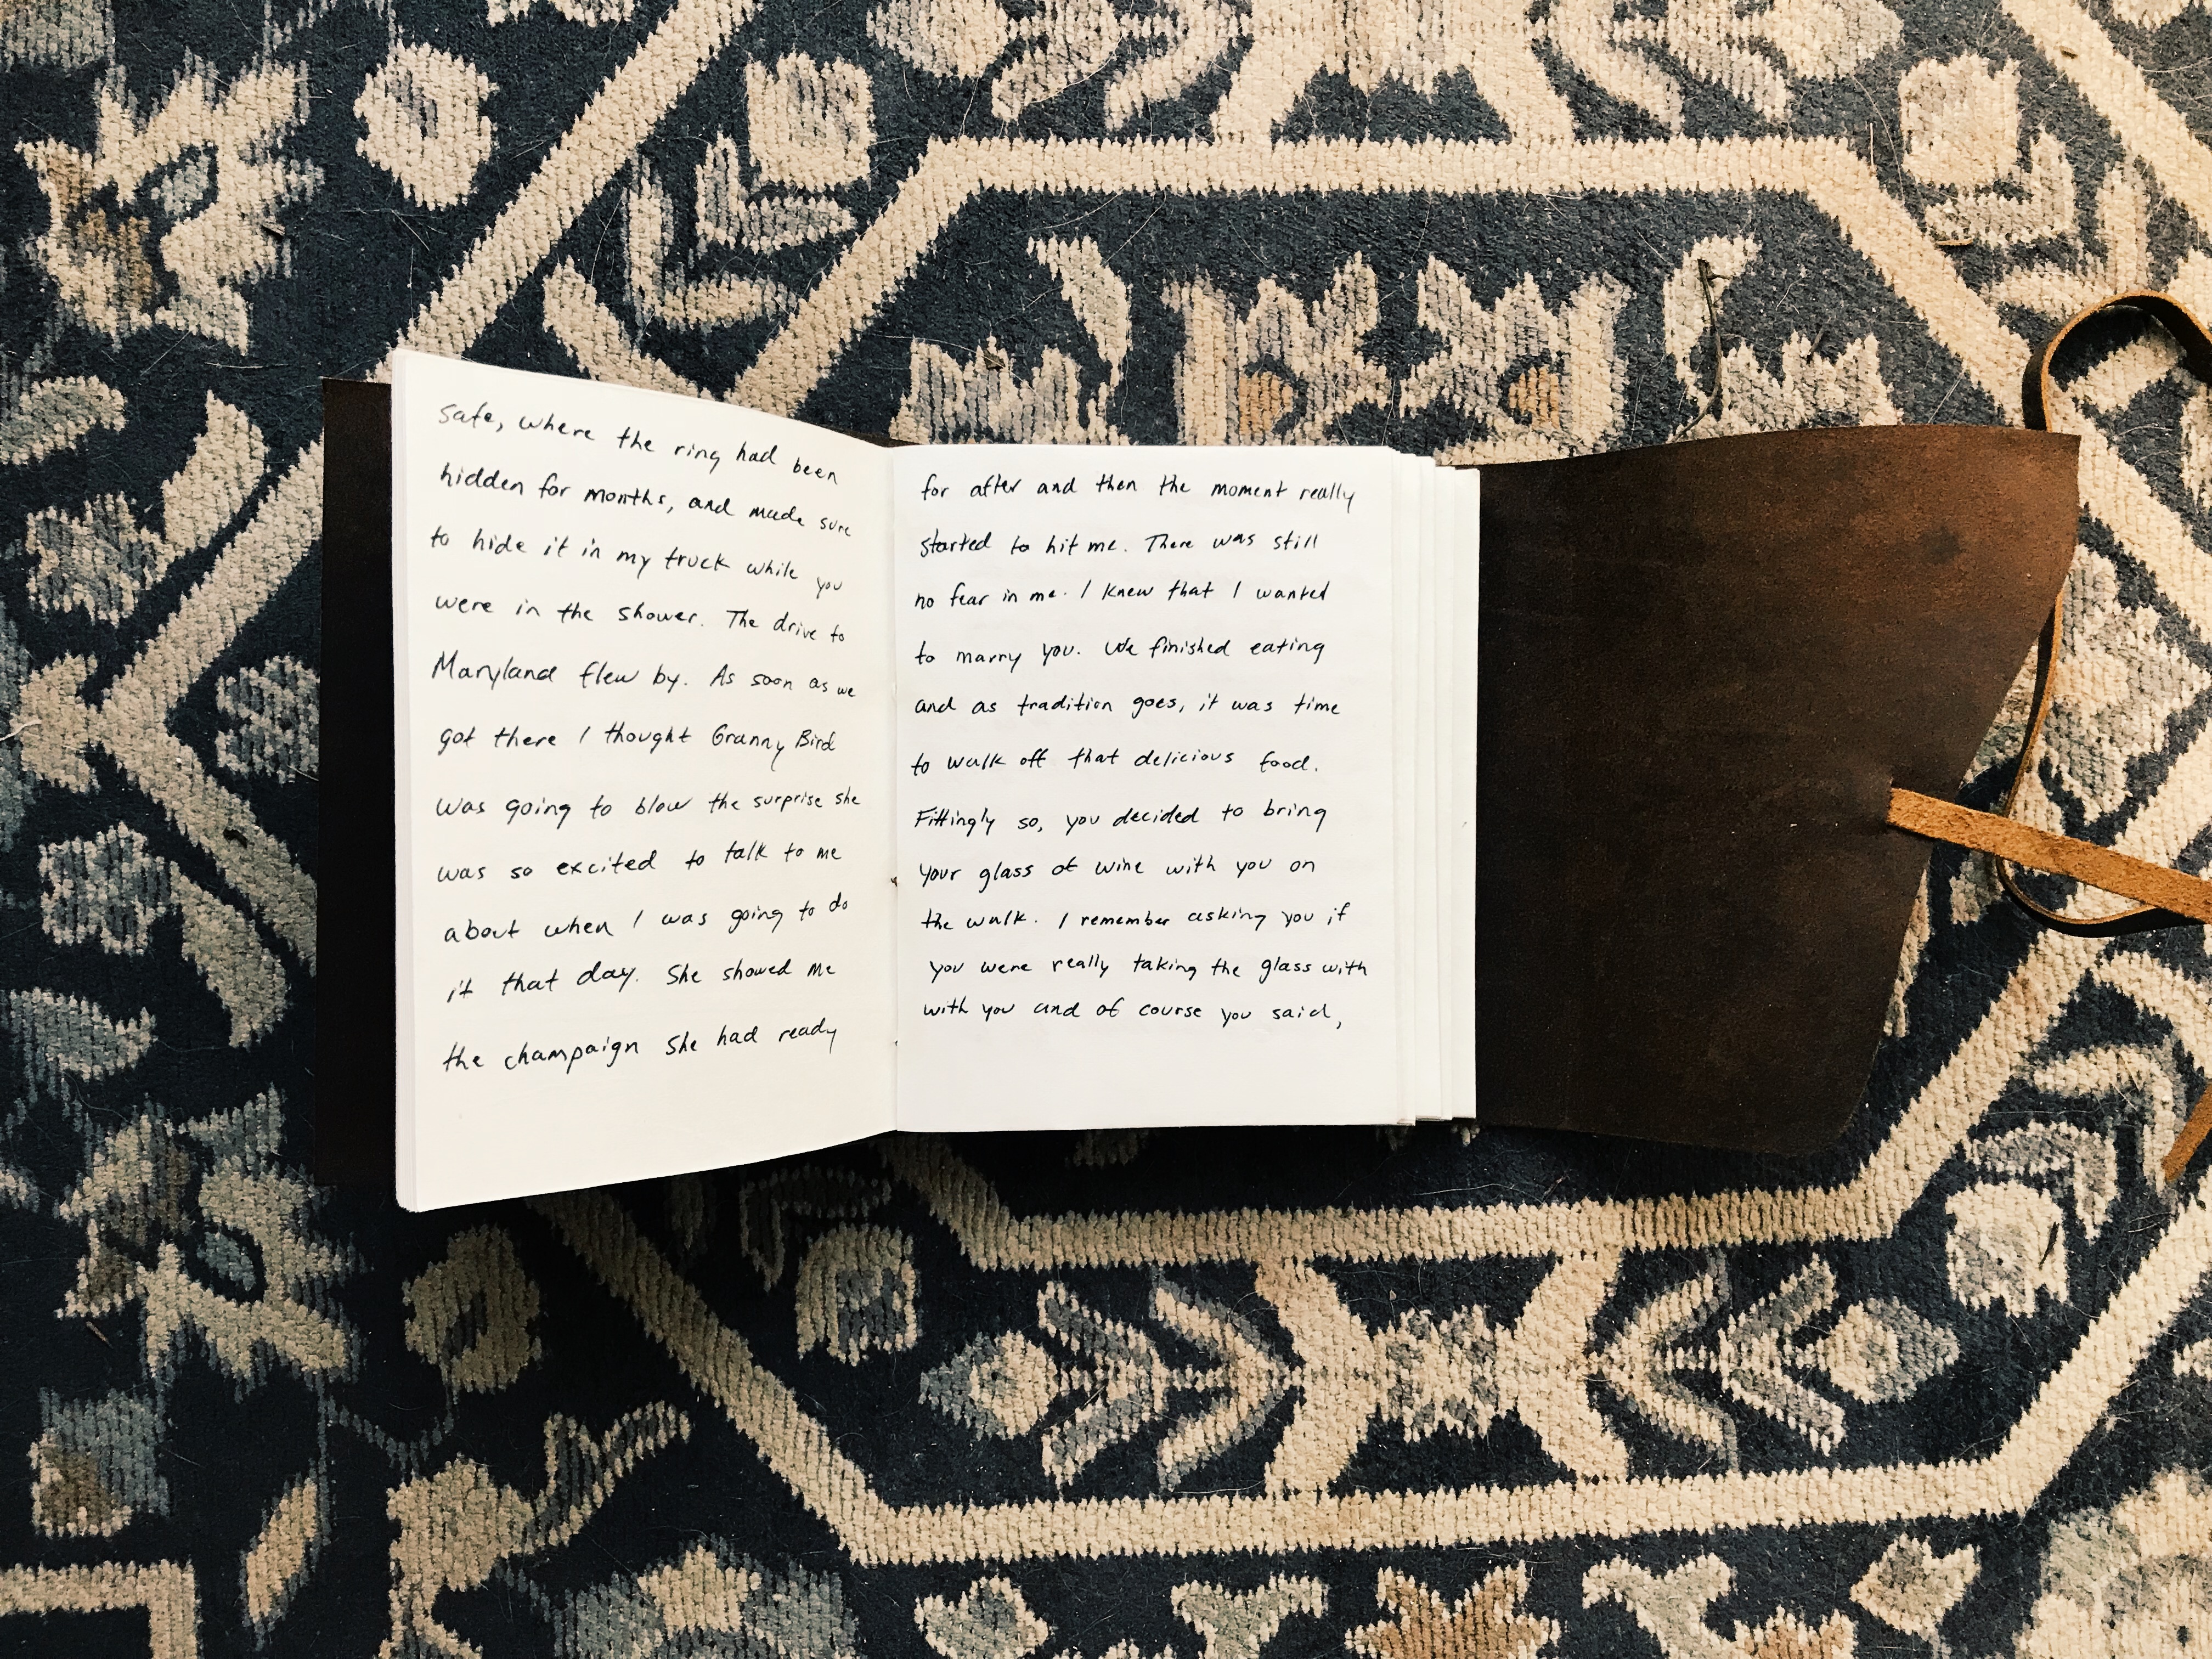 safe, where the ring had been
hidden for months, and made sure
to hide it in my truck while you
were in the shower. The drive to
Maryland flew by. As soon as we
got there I thought Granny Bird
was going to blow the surprise she
was so excited to talk to me
about when I was going to do
it that day. She showed me
the champaign she had ready
for after and then the moment really
started to hit me. There was still
no fear in me. I knew that I wanted
to marry you. We finished eating
and as tradition goes, it was time
to walk off that delicious food.
Fittingly so, you decided to bring
your glass of wine with you on
the walk. I remember asking you if
you were really taking the glass with
with you and of course you said,